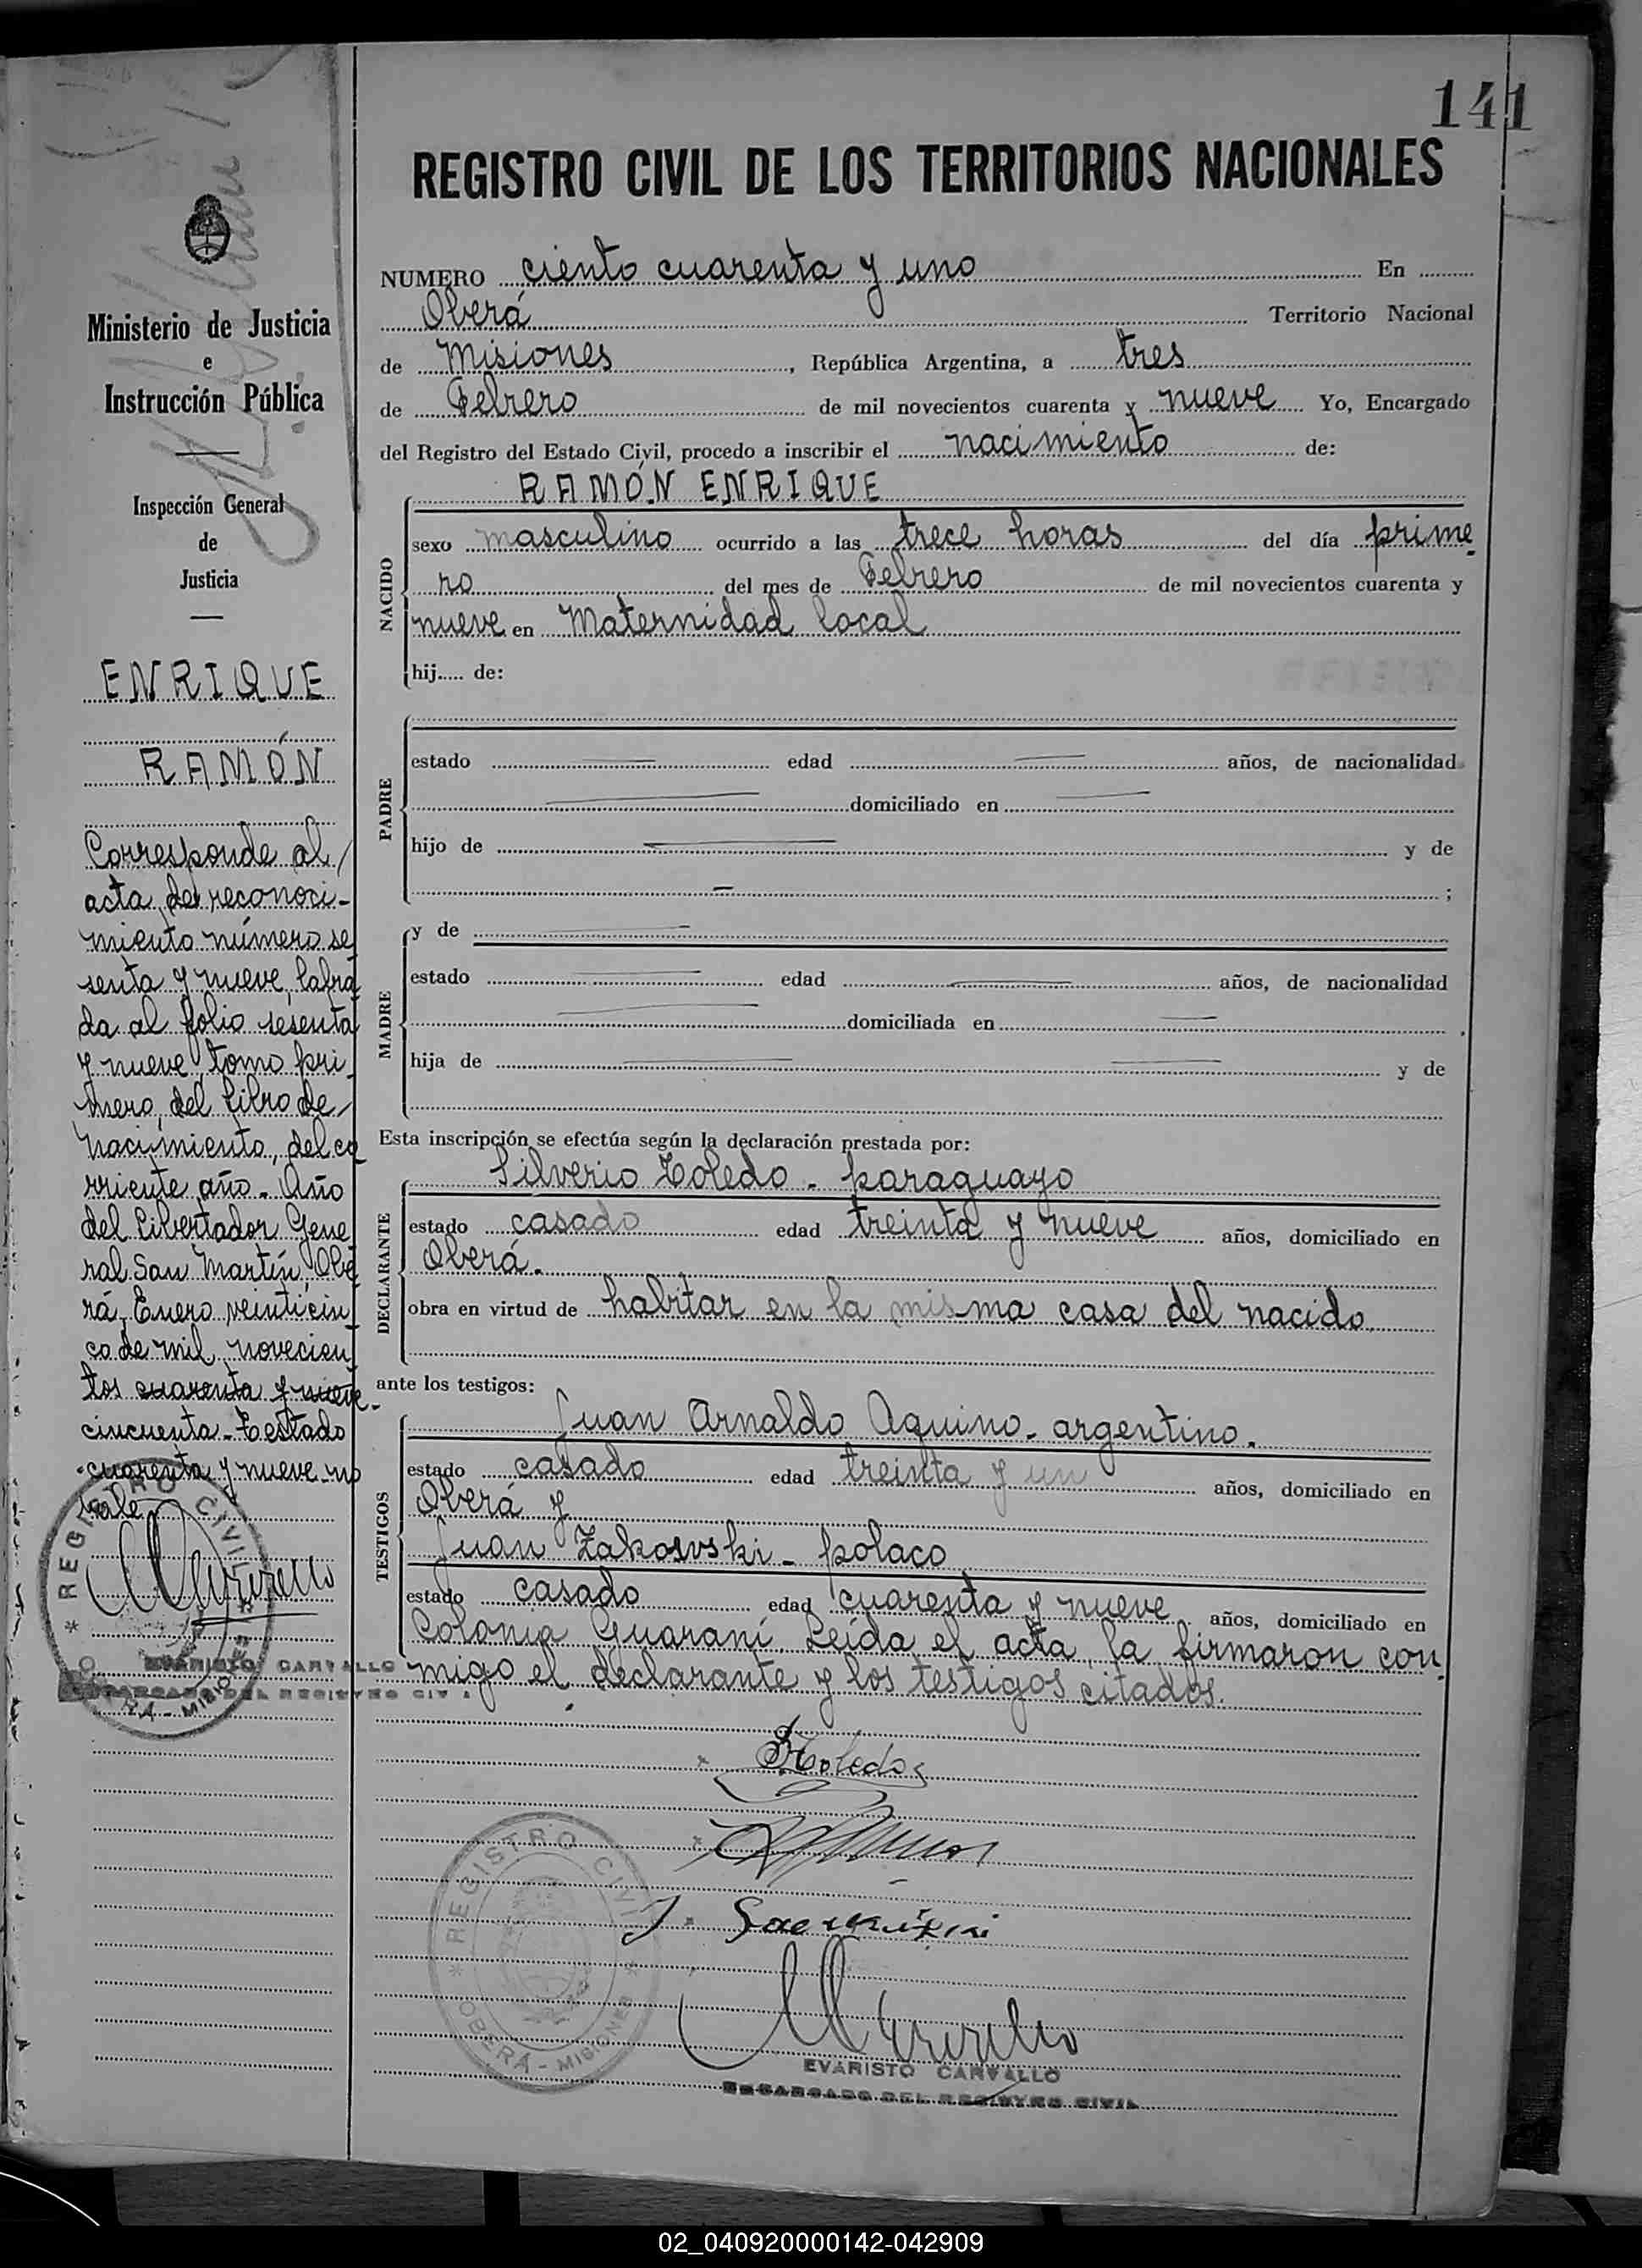 141
REGISTRO CIVIL DE LOS TERRITORIOS NACIONALES
Ministerio de Justicia
e
Instrucción Pública
Inspección General
de
Justicia
ENRIQUE
RAMÓN
Corresponde al
acta de reconoci-
miento número se
senta y nueve, labra
da al folio sesenta
y nueve, tomo pri
mero, del Libro de
nacimiento, del co
rriente año. Año
del Libertador Gene
ral San Martín, Obe
rá, Enero, veinticin
co de mil novecien
tos cuarenta y nueve-
cincuenta - Testado
cuarenta y nueve - no
vale
REGISTRO CIVIL
EVARISTO CARVALLO
ENCARGADO DEL REGISTRO CIVIL
NUMERO ciento cuarenta y uno En
Oberá Territorio Nacional
de Misiones, República Argentina, a tres
de Febrero de mil novecientos cuarenta y nueve Yo, Encargado
del Registro del Estado Civil, procedo a inscribir el nacimiento de:
NACIDO
RAMÓN ENRIQUE
sexo masculino ocurrido a las trece horas del día prime
ro del mes de Febrero de mil novecientos cuarenta y
nueve en Maternidad local
hij..... de:
PADRE
estado edad años, de nacionalidad
domiciliado en
hijo de y de
;
MADRE
y de
estado edad años, de nacionalidad
domiciliada en
hija de y de
Esta inscripción se efectúa según la declaración prestada por:
DECLARANTE
Silverio Toledo - paraguayo
estado casado edad treinta y nueve años, domiciliado en
Oberá.
obra en virtud de habitar en la misma casa del nacido.
ante los testigos:
TESTIGOS
Juan Arnaldo Aquino - argentino.
estado casado edad treinta y un años, domiciliado en
Oberá y
Juan Zakowski - polaco
estado casado edad cuarenta y nueve años, domiciliado en
Colonia Guaraní. Leída el acta, la firmaron con
migo el declarante y los testigos citados.
SToledo
REGISTRO CIVIL
OBERÁ - MISIONES
EVARISTO CARVALLO
ENCARGADO DEL REGISTRO CIVIL
02_040920000142-042909